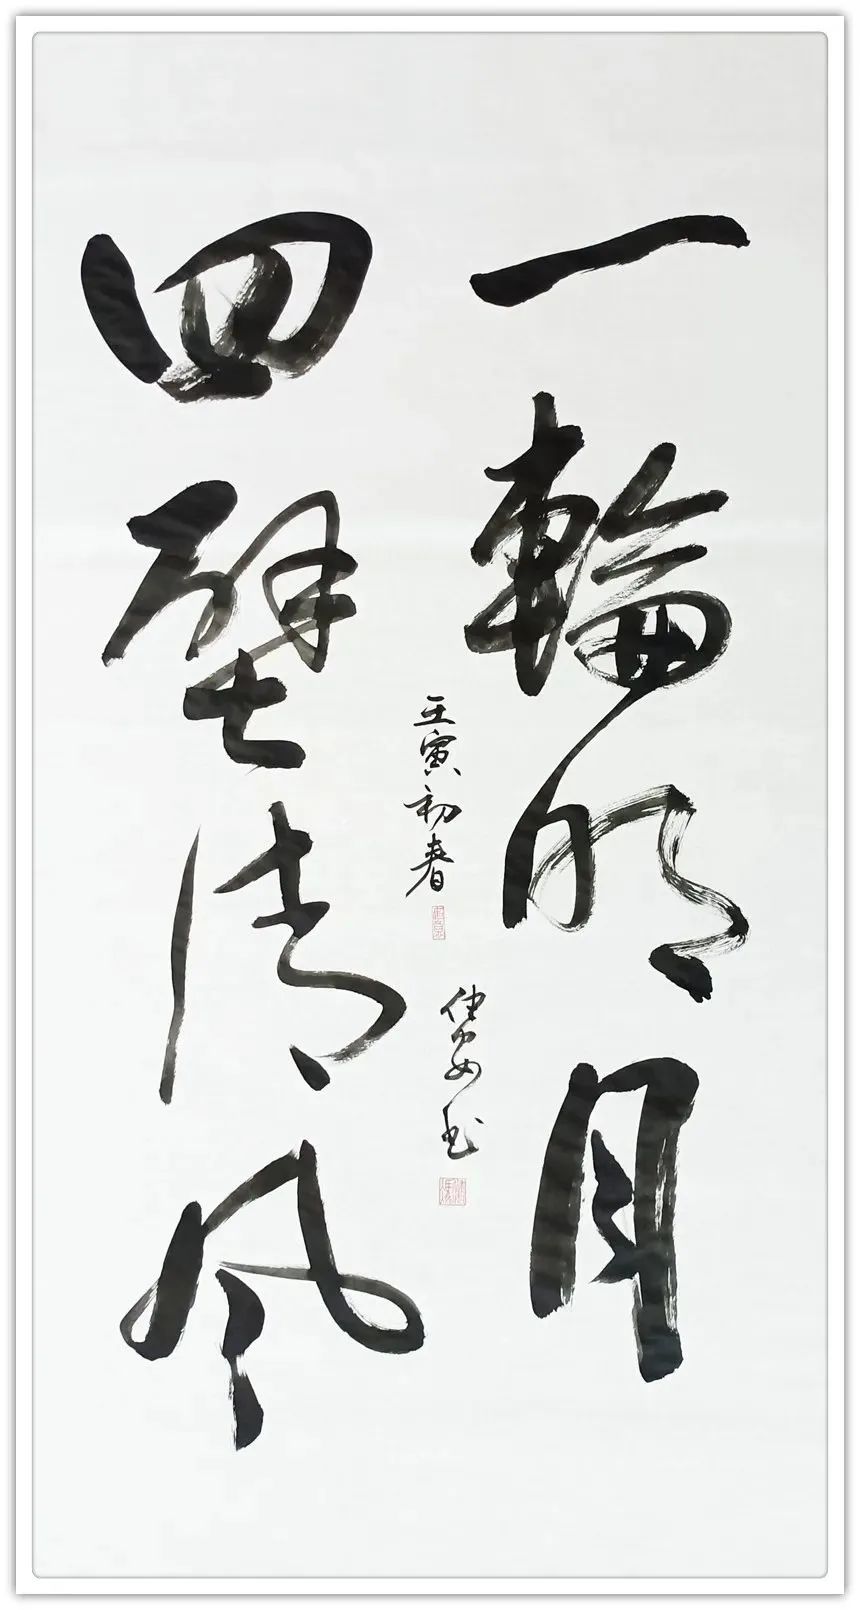 一輪明月
四壁清风
壬寅初春
书